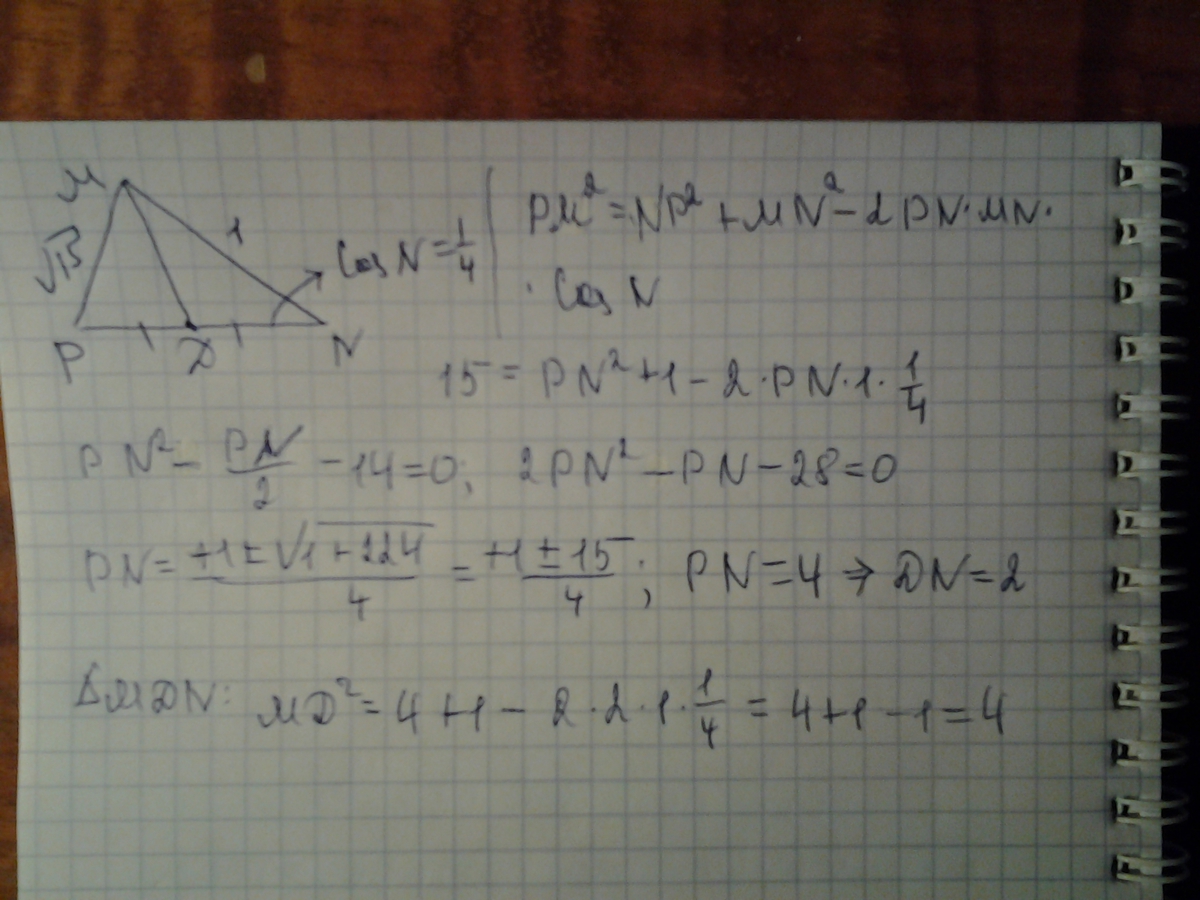 M
√15
1
P
D
N
Cos N = 1/4
PM² = NP² + MN² - 2PN·MN·
· Cos N
15 = PN² + 1 - 2·PN·1·1/4
PN² - PN/2 - 14 = 0; 2PN² - PN - 28 = 0
PN = (+1 ± √(1+224))/4 = (+1 ± 15)/4; PN = 4 ⇒ DN = 2
ΔMDN: MD² = 4 + 1 - 2·2·1·1/4 = 4 + 1 - 1 = 4